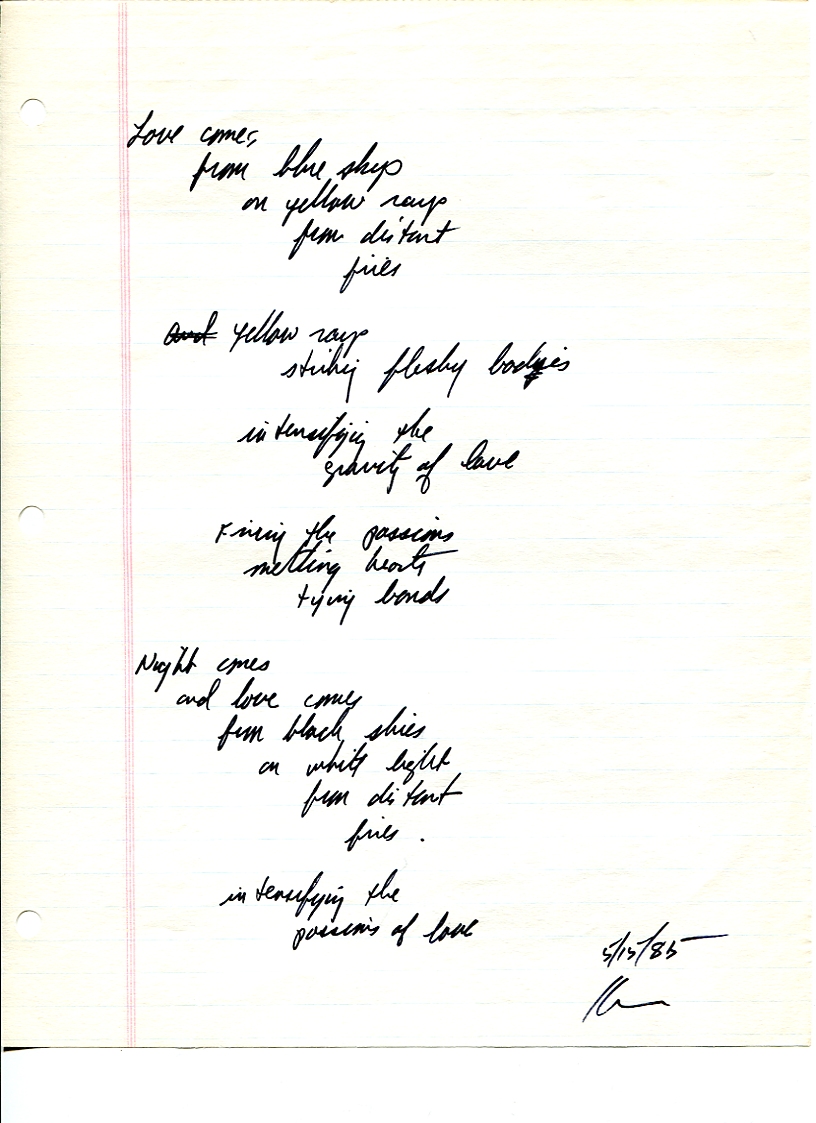 Love comes,
from blue skys
on yellow rays
from distant
fires
and yellow rays
striking fleshy bodies
intensifying the
gravity of love
Firing the passions
melting hearts
tying bonds
Night comes
and love comes
from black skies
on white light
from distant
fires.
intensifying the
passions of love
5/15/85